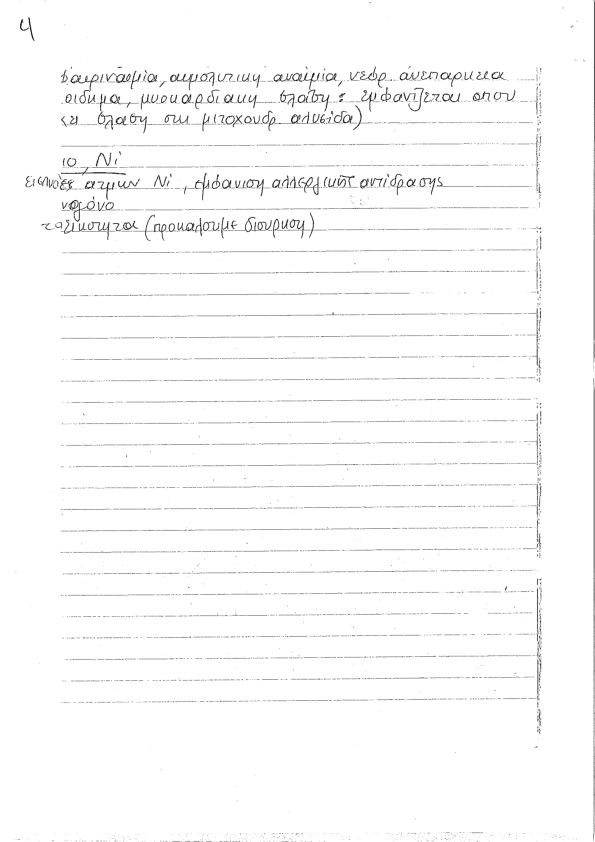 4
αιμολυτικη αναιμία, νεφρ. ανεπαρκεια
οιδημα, μυοκαρδιακη βλαβη : εμφανίζεται οπου
βλαβη στη μιτοχονδρ. αλυσίδα)
10, Ni
ατμων Ni, εμφανιση αλλεργικης αντίδρασης
τοξικοτητα (προκαλουμε διουρηση)